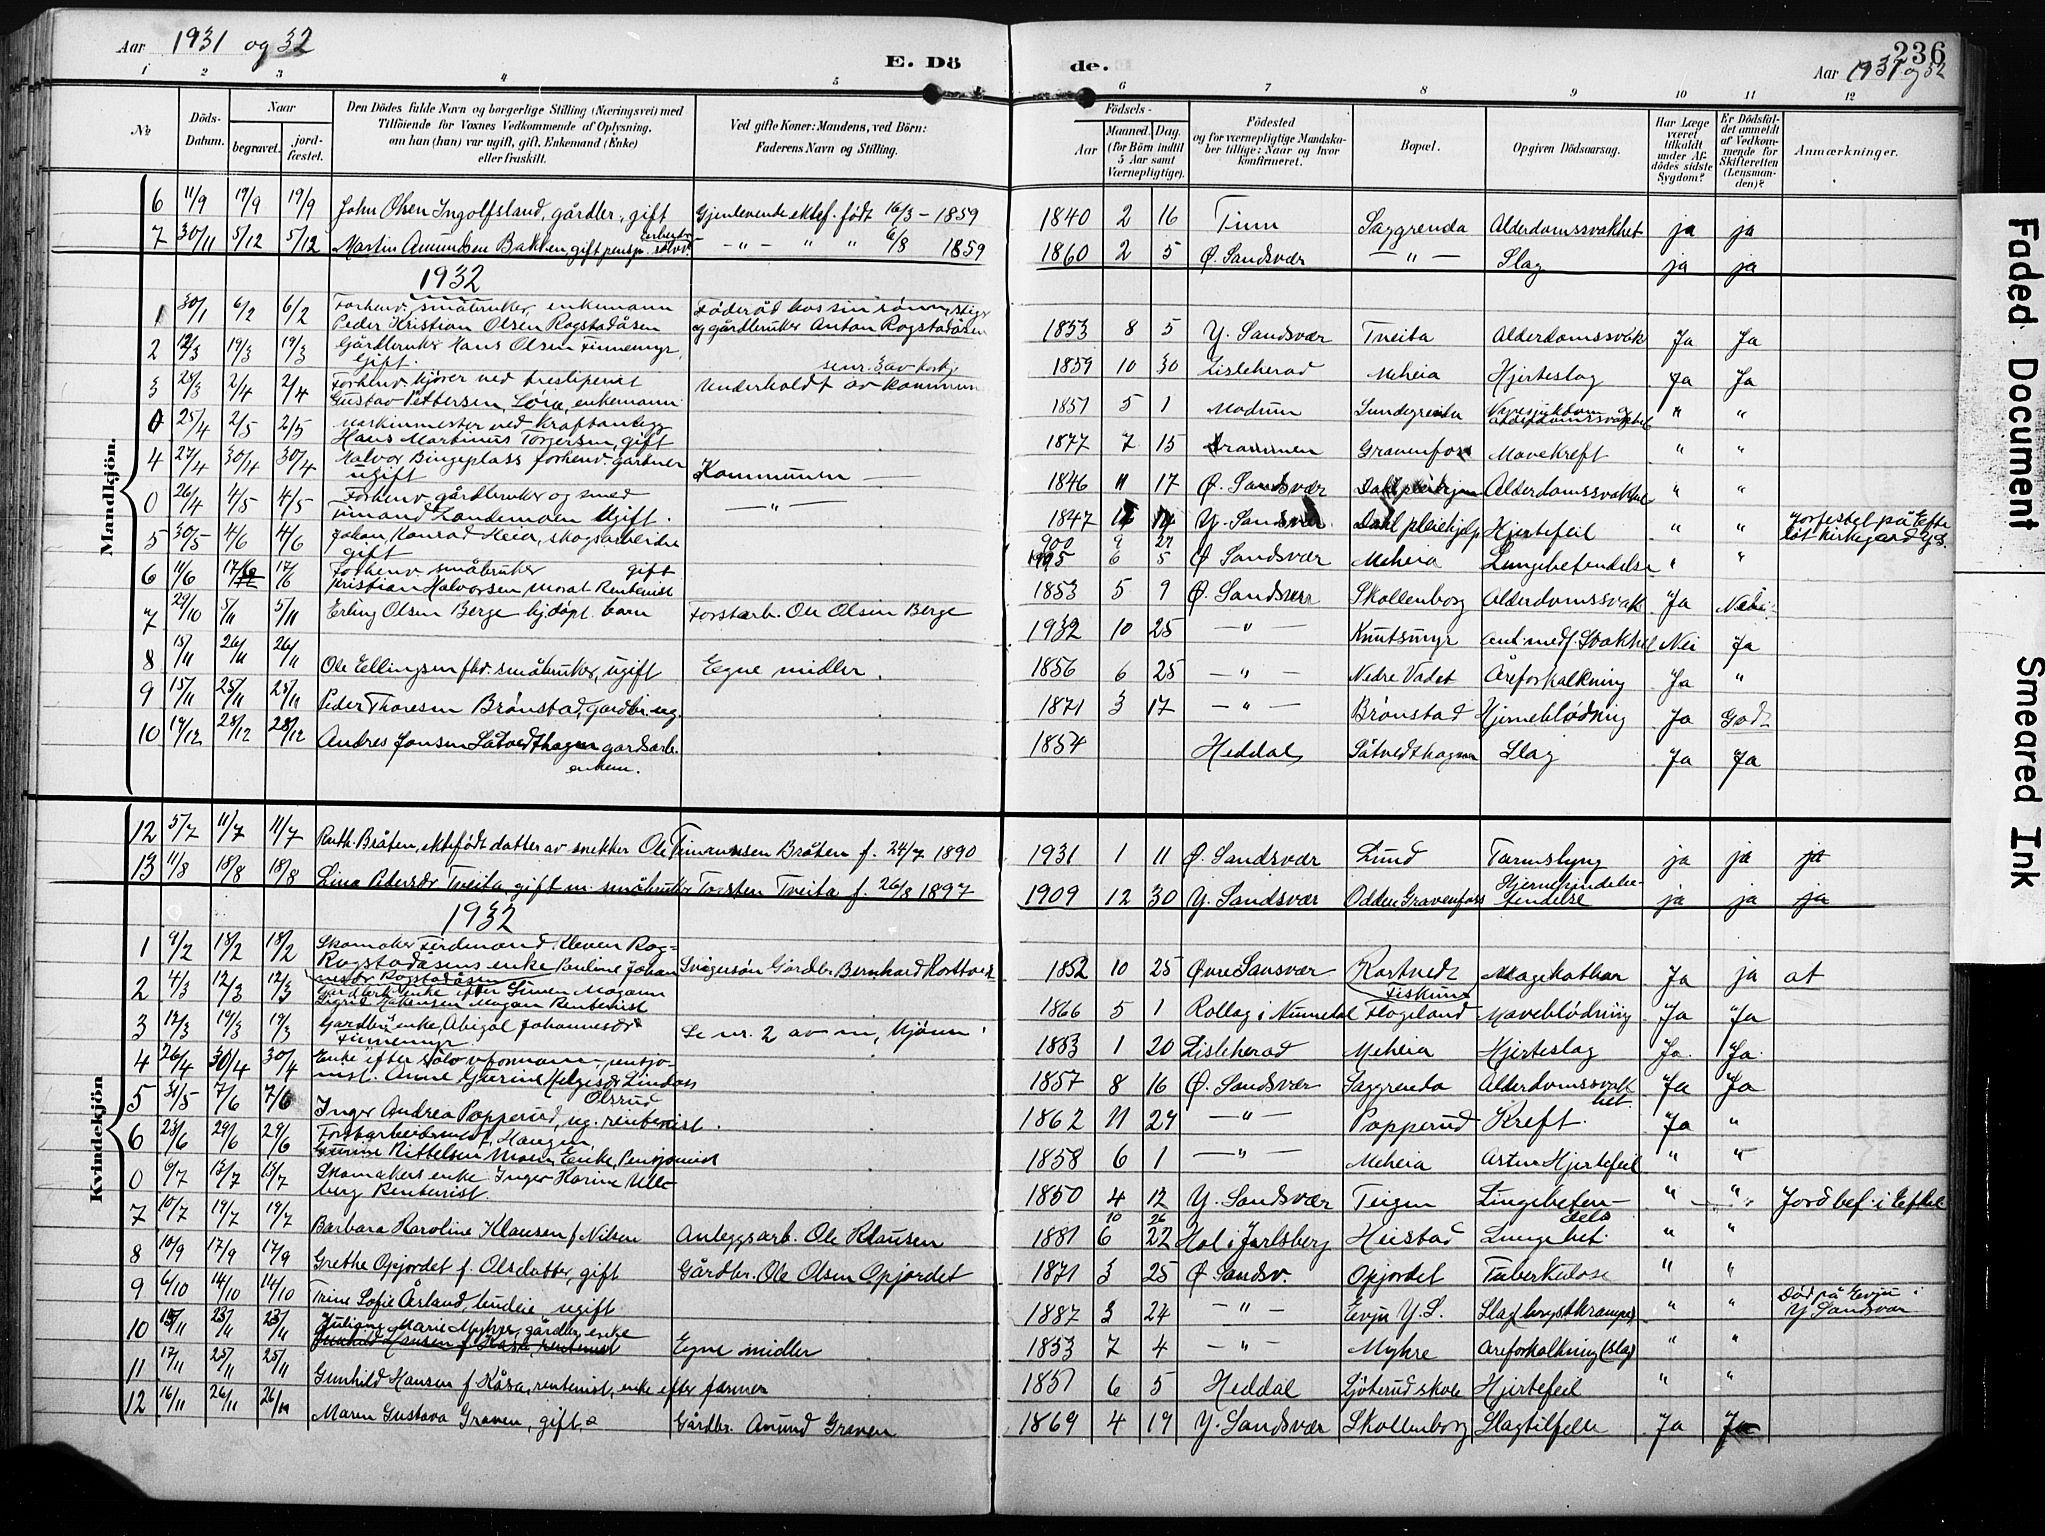 Aar 1931 og 32
E. Dö
de.
236
Aar 1931 og 32
1 2 3 4 5 6 7 8 9 10 11 12
No
Döds-Datum.
Naar
begravet.
jord-fæstet.
Den Dödes fulde Navn og borgerlige Stilling (Næringsvei) med
Tilföiende for Voxnes Vedkommende af Oplysning,
om han (hun) var ugift, gift, Enkemand (Enke)
eller fraskilt.
Ved gifte Koner: Mandens, ved Börn:
Faderens Navn og Stilling.
Födsels-
Aar
Maaned. Dag.
(for Börn indtil
5 Aar samt
Værnepligtige).
Födested
og for værnepligtige Mandska-
ber tillige: Naar og hvor
konfirmeret.
Bopæl.
Opgiven Dödsaarsag.
Har Læge
været
tilkaldt
under Af-
dödes sidste
Sygdom?
Er Dödsfal-
det anmeldt
af Vedkom-
mende for
Skifteretten
(Lensman-
den)?
Anmærkninger.
Mandkjön.
6 11/9 19/9 19/9 John Olsen Ingolfsland, gårdbr., gift Gjenlevende ektef. født 16/3 - 1859 1840 2 16 Tinn Saggrenda Alderdomssvakhet ja ja
7 30/11 5/12 5/12 Martin Amundsen Bakken, gift pensj. arbeider sølvv. -"- " " 6/8 1859 1860 2 5 Ø. Sandsvær -"- Slag ja ja
1932
1 30/1 6/2 6/2 Forhenv. småbruker, enkemann Føderåd hos sin sønn
Peder Kristian Olsen Rogstadåsen og gårdbruker Anton Rogstadåsen 1853 8 5 Y. Sandsvær Tveita Alderdomssvak Ja Ja
2 12/3 19/3 19/3 Gårdbruker Hans Olsen Finnemyr,
gift. se nr. 3 av kvkj. 1859 10 30 Lisleherad Meheia Hjerteslag Ja Ja
3 28/3 2/4 2/4 Forhenv. kjører ved tresliperiet Underholdt av kommunen
Gustav Pettersen, Lora, enkemann 1851 5 1 Modum Lundegrenda Alderdomssvakhet " "
0 25/4 2/5 2/5 Maskinmester ved Kraftanlegg
Hans Martinus Torgersen, gift 1877 7 15 Drammen Gravenfoss Mavekreft " "
4 27/4 30/4 30/4 Halvor Bingeplass forhenv. gartner
ugift Kommunen 1846 11 17 Ø. Sandsvær Dahl pleiehjem Alderdomssvakhet " "
0 26/4 4/5 4/5 Forhenv. gårdbruker og smed
Landemoen Ugift. -"- 1847 Y. Sandsvær Dahl pleiehj. Hjertefeil " " Jorfestet på Efte
løt kirkegård Y.S.
5 30/5 4/6 4/6 Johan Konrad Heia, skogsarbeider
gift 1905 6 5 Ø Sandsvær Meheia Lungebetendelse " "
6 11/6 17/6 17/6 Forhenv. småbruker gift
Kristian Halvorsen Morat Rentenist 1853 5 9 Ø. Sandsvær Skollenborg Alderdomssvak Ja Nei
7 29/10 5/11 5/11 Erling Olsen Berge hjdøpt barn Forstarb. Ole Olsen Berge 1932 10 25 -"- Knutsmyr ant. medf. Svakhet Nei Ja
8 15/11 26/11 26/11 Ole Ellingsen fhv. småbruker, ugift Egne midler. 1856 6 25 -"- Nedre Vadet Åreforkalkning Ja "
9 15/11 25/11 25/11 Peder Thoresen Brønstad, gardbr. ug. 1871 3 17 -"- Brønstad Hjerneblødning Ja Godt
10 19/12 28/12 28/12 Andres Jonsen Såtvedthagen gardsarb.
enkem. 1854 Heddal Såtvedthagen Slag Ja Ja
Kvindekjön
12 5/7 11/7 11/7 Ruth Bråten, ektefødt datter av snekker Ole Timansen Bråten f. 24/7 1890 1931 1 11 Ø. Sandsvær Lund Tarmslyng ja ja ja
13 11/8 18/8 18/8 Lina Pedersdr Tveita, gift m. småbruker Torsten Tveita f. 26/8 1897 1909 12 30 Y. Sandsvær Odden Gravenfoss Hjernehindebe-
tendelse ja ja ja
1932
1 9/2 18/2 18/2 Skomaker Ferdinand Kleven Rog-
Rogstadåsens enke Pauline Johan Svigersøn Gårdbr. Bernhard Kortvedt 1852 10 25 Øvre Sansvær Kortvedt Magekatharr Ja ja at
ansdr Rogstadåsen Fiskum
2 4/3 12/3 12/3 Gardbrk. enke efter Simen Mogann
Sigrid Håkensen Mogan Rentenist 1866 5 1 Rollag i Numedal Flogeland Maveblødning Ja Ja
3 12/3 19/3 19/3 Gardbr. enke, Abigal Johannesdr
Finnemyr. Se nr. 2 av m. kjønn 1853 1 20 Lisleherad Meheia Hjerteslag Ja. Ja.
4 26/4 30/4 30/4 Enke efter sølvv. formann, pensjo-
nist. Anne Gurine Helgesdr Lindås 1857 8 16 Ø. Sandsvær Saggrenda Alderdomssvak
het. Ja Ja
5 31/5 7/6 7/6 Olsrud
Inger Andrea Popperud, ug. rentenist. 1862 11 29 -"- Popperud Kreft. Ja "
6 23/6 29/6 29/6 Haugen,
Gunine Kittelsen Moen, Enke, Pensjonist 1858 6 1 -"- Meheia Hjertefeil " "
0 9/7 13/7 13/7 Skomakers enke Inger Karine Ulle-
berg Rentenist. 1850 4 12 Y. Sandsvær Teigen Lungebeten-
delse " " Jordbef. i Eftel.
7 10/7 19/7 19/7 Barbara Karoline Klausen f. Nilsen Anleggsarb. Ole Klausen 1881 6 22 Hol i Jarlsberg Heistad Lungebet. " "
8 10/9 17/9 17/9 Grethe Opjordet f. Olsdatter, gift Gårdbr. Ole Olsen Opjordet 1871 3 25 Ø Sandsv. Opjordet Tuberkulose " "
9 6/10 14/10 14/10 Trine Sofie Årland, budeie ugift 1887 3 24 -"- Evju Y. S. Slag (brystkrampe) " " Død på Evju i
Y. Sandsvær
10 15/11 23/11 23/11 Juliane Marie Myhre, gårdbr. enke
Gunhild Hansen f. Kåsa, rentenist Egne midler 1853 7 4 -"- Myhre Åreforkalkning (slag) " "
11 17/11 25/11 25/11 Gunhild Hansen f. Kåsa, rentenist, enke efter farmer 1851 6 5 Heddal Ljøterud skole Hjertefeil " "
12 16/11 26/11 26/11 Maren Gustava Graven, gift, Gårdbr. Anund Graven 1869 4 19 Y. Sandsvær Skollenborg Slagtilfelle Ja Ja
Faded Document
Smeared Ink